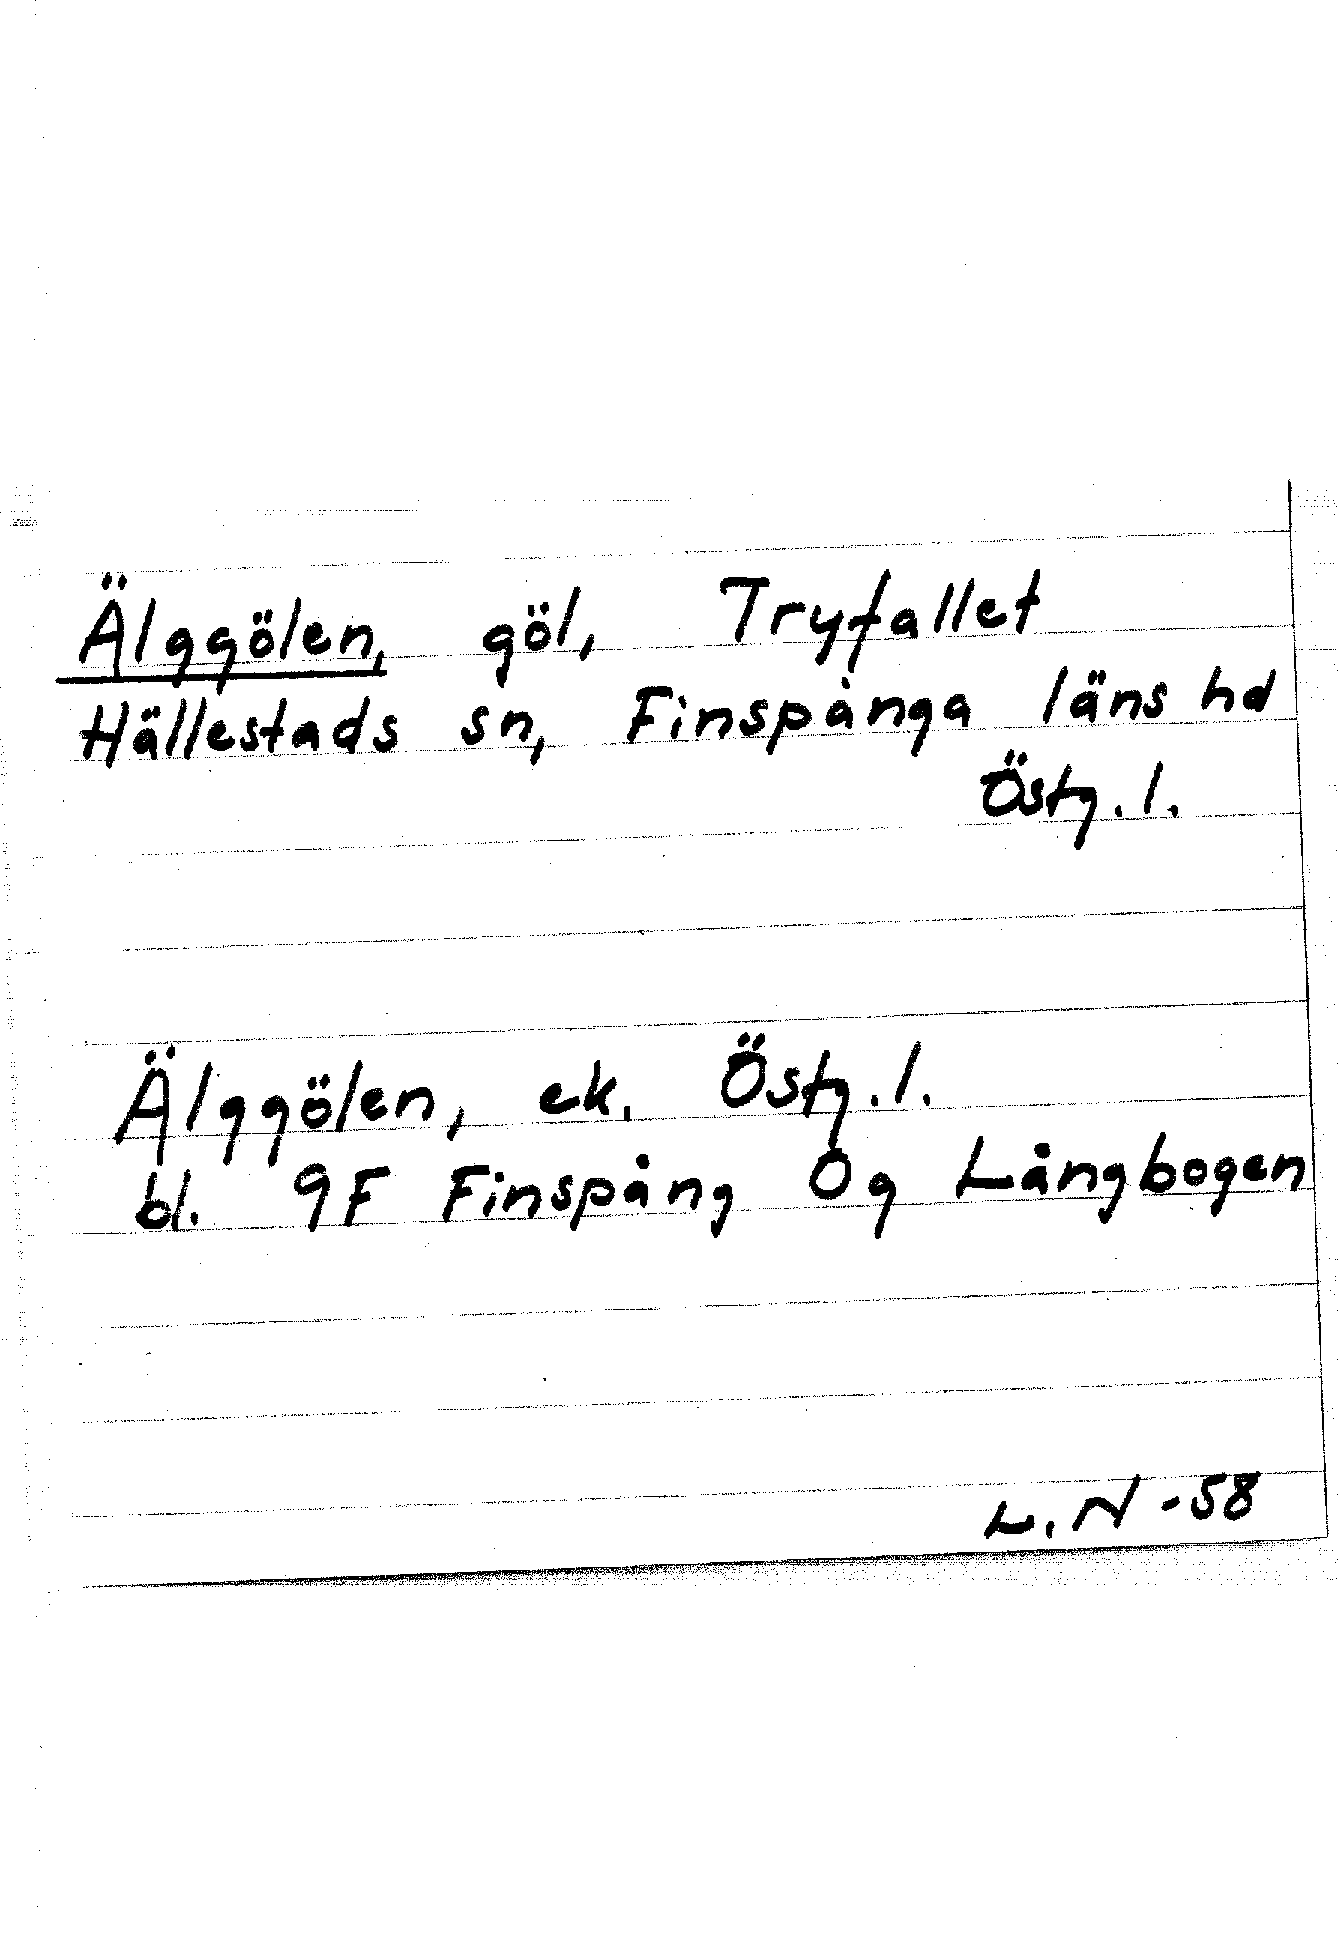 Älggölen, göl, Tryfallet
Hällestads sn, Finspånga läns hd
Östg. l.
Älggölen, ek. Östg. l.
bl. 9F Finspång 0g Långbogen
L. N -58